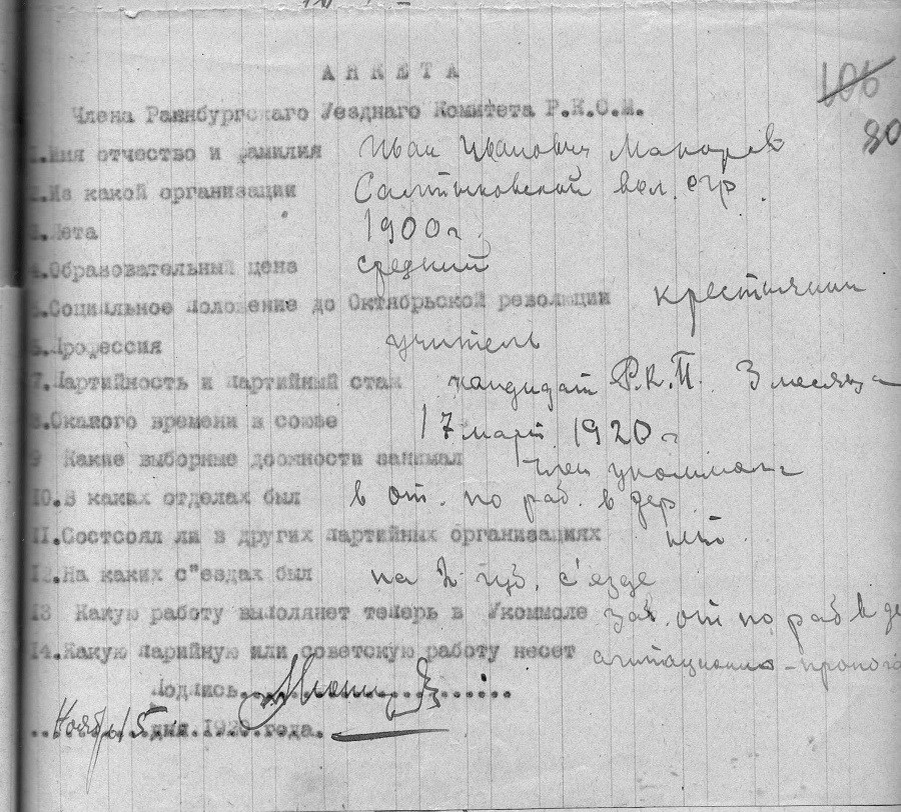 106
80
АНКЕТА
Члена Раннбургскаго Уезднаго Комитета Р.К.С.М.
1.Имя отчество и фамилия Иван Иванович Макарев
2.Из какой организации Салтыковской вол. огр
3.Лета 1900 г.
4.Образовательный ценз средний
5.Социальное положение до Октябрьской революции крестьянин
6.Профессия учитель
7.Партийность и партийный стаж кандидат Р.К.П. 3 месяца
8.Окакого времени в союзе 17 март 1920 г
9 Какие выборные должности занимал член укоммола
10.В каких отделах был в от. по раб. в дер
11.Состсоял ли в других партийных организациях нет
12.На каких с"ездах был на 2 с'езде
13 Какую работу выполянет теперь в Укоммоле зав. от по раб в де
14.Какую парийную или советскую работу несет агитационно-пропога
Подпись
Ноябрь 15 дня 1920 года.